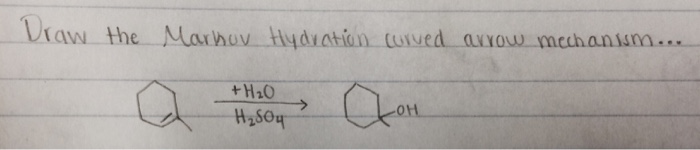 Draw the Markov Hydration curved arrow mechanism...
+H₂O
H₂SO₄
OH